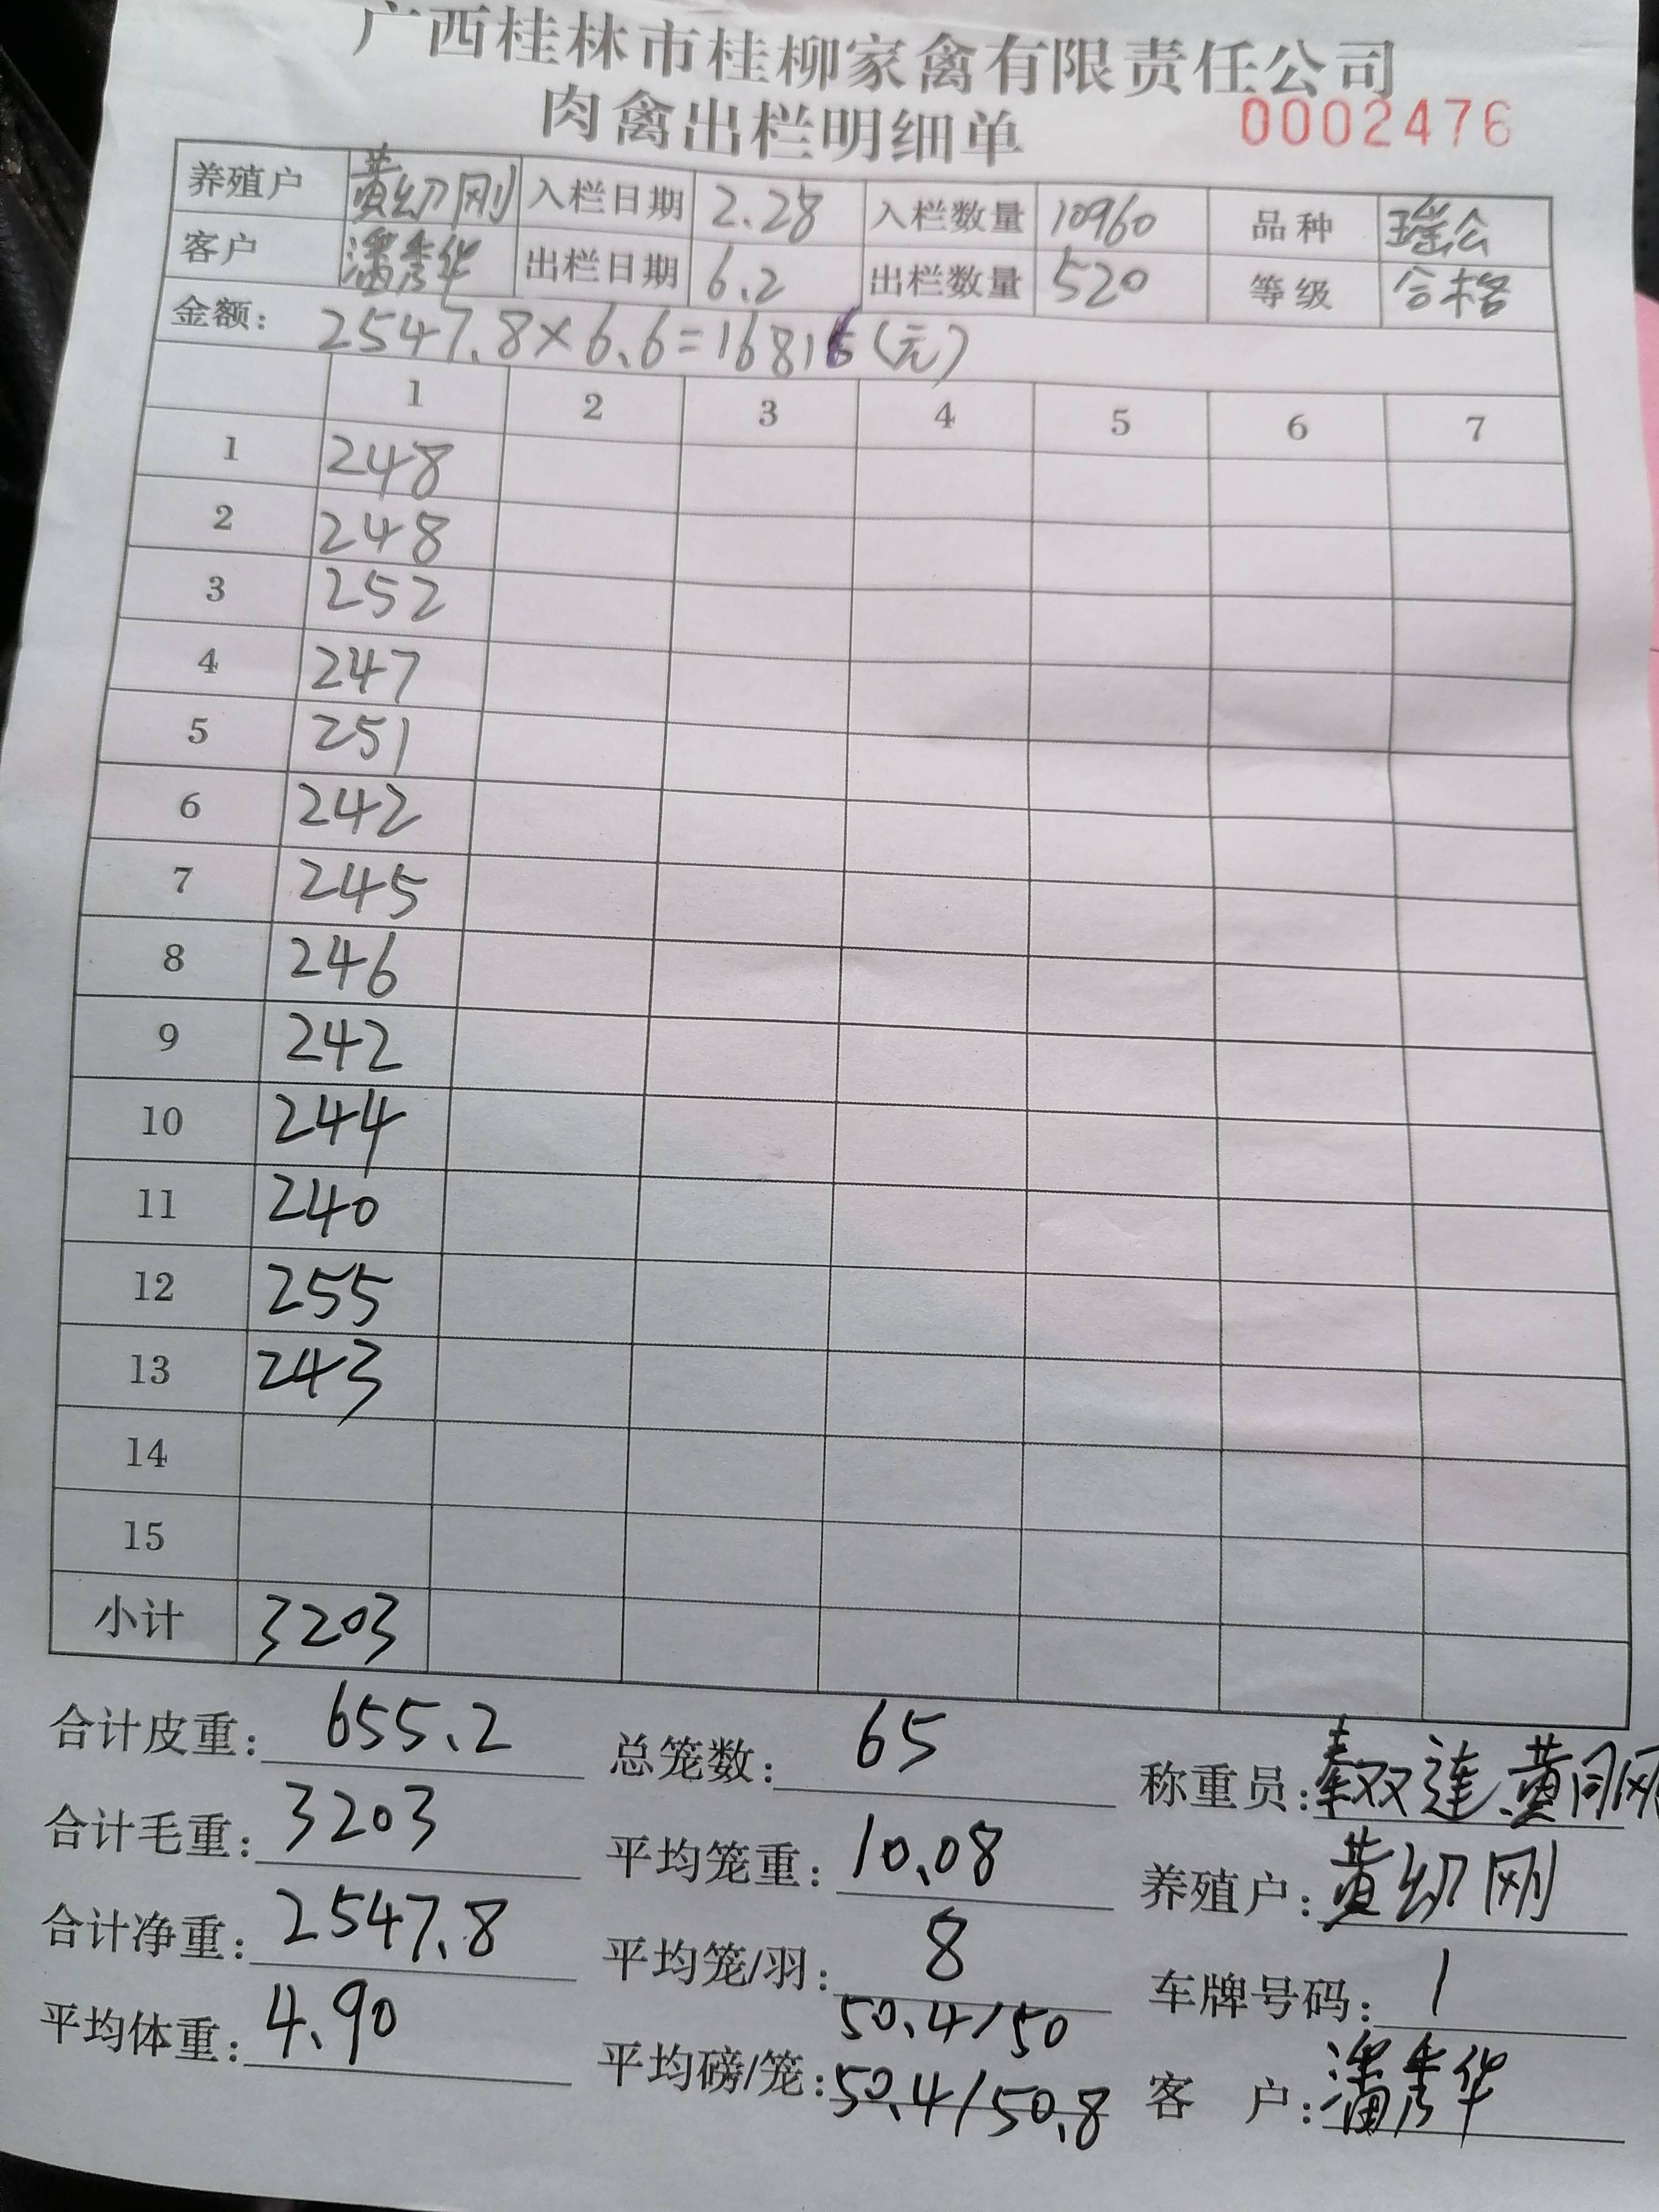 广西桂林市桂柳家禽有限责任公司
肉禽出栏明细单 0002476
养殖户 黄幼刚 入栏日期 2.28 入栏数量 10960 品种 瑶公
客户 潘秀华 出栏日期 6.2 出栏数量 520 等级 合格
金额: 2547.8×6.6=16816(元)
1 2 3 4 5 6 7
1 248
2 248
3 252
4 247
5 251
6 242
7 245
8 246
9 242
10 244
11 240
12 255
13 243
14
15
小计 3203
合计皮重: 655.2 总笼数: 65 称重员: 秦双连 黄刚
合计毛重: 3203 平均笼重: 10.08 养殖户: 黄幼刚
合计净重: 2547.8 平均笼/羽: 8 车牌号码: 1
50.4/50
平均体重: 4.90 平均磅/笼: 50.4/50.8 客户: 潘秀华